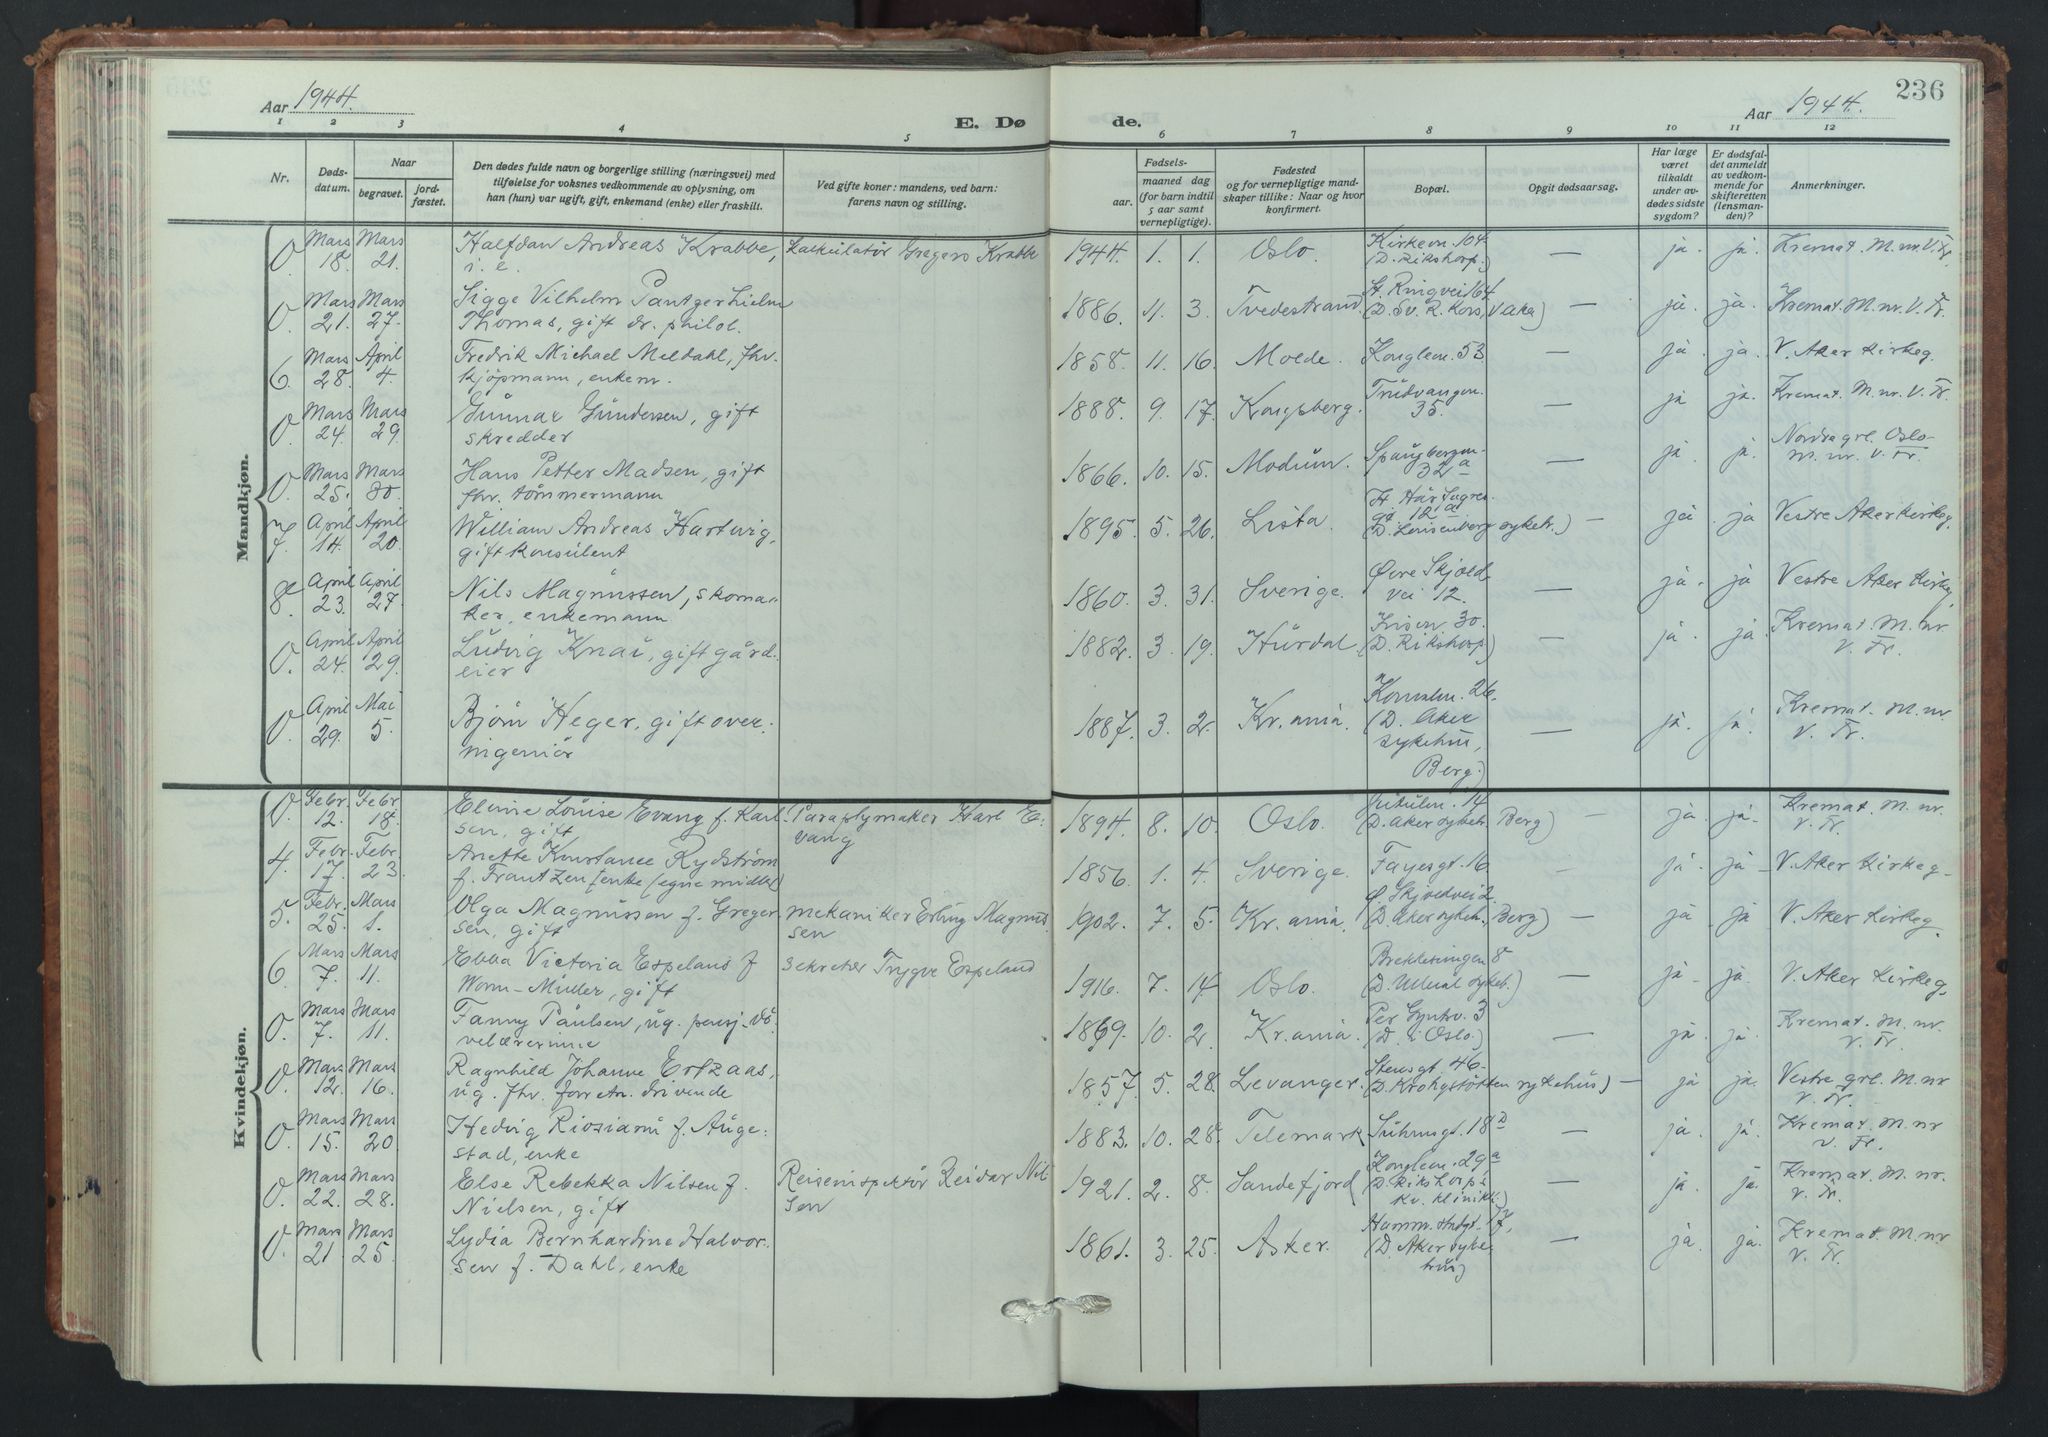 236
Aar 1944.
E. Dø
de.
Aar 1944.
1 2 3 4 5 6 7 8 9 10 11 12
Nr.
Døds-
datum.
Naar
begravet.
jord-
fæstet.
Den dødes fulde navn og borgerlige stilling (næringsvei) med
tilføielse for voksnes vedkommende av oplysning, om
han (hun) var ugift, gift, enkemand (enke) eller fraskilt.
Ved gifte koner: mandens, ved barn:
farens navn og stilling.
Fødsels-
aar.
maaned dag
(for barn indtil
5 aar samt
vernepligtige).
Fødested
og for vernepligtige mand-
skaper tillike: Naar og hvor
konfirmert.
Bopæl.
Opgit dødsaarsag.
Har læge
været
tilkaldt
under av-
dødes sidste
sygdom?
Er dødsfal-
det anmeldt
av vedkom-
mende for
skifteretten
(lensman-
den)?
Anmerkninger.
Mandkjøn.
0. Mars 18. Mars 21. Halfdan Andreas Krabbe, i.e. kalkulatør Gregers Krabbe 1944. 1. 1. Oslo. Kirkevn. 104. (D. Rikshosp.) — ja. ja. Kremat. M. nr. V. Fr.
0. Mars 21. Mars 27. Sigge Vilhelm Pantzerhielm Thomas, gift dr. philol. 1886. 11. 3. Tvedestrand. St. Ringvei 64. (D. Sv. R. Kors, Vaka) — ja. ja. Kremat. M. nr. V. Fr.
6. Mars 28. April 4. Fredrik Michael Meldahl, fhv. kjøpmann, enkem. 1858. 11. 16. Molde. Konglevn. 53 — ja. ja. V. Aker kirkeg.
0. Mars 24. Mars 29. Gunnar Gundersen, gift skredder 1888. 9. 17. Kongsberg. Trudvangvn. 35. — ja ja. Kremat. M. nr. V. Fr.
0. Mars 25. Mars 30. Hans Petter Madsen, gift fhv. tømmermann 1866. 10. 15. Modum. Spangbergvn. 32 a — ja. ja. Nordre grl. Oslo- M. nr. V. Fr.
7. April 14. April 20. William Andreas Hartvig, gift konsulent 1895. 5. 26. Lista. St. Hårfagres gt 12 a (D. Lovisenberg sykeh.) — ja. ja Vestre Aker kirkeg.
8. April 23. April 27. Nils Magnussen, skoma- ker, enkemann 1860. 3. 31. Sverige. Øvre Skjold. vei 12. — ja. ja Vestre Aker kirkeg.
0. April 24. April 29. Ludvig Knai, gift gård- eier 1882. 3. 19. Hurdal. 30. (D. Rikshosp.) — ja. ja. Kremat. M. nr. V. Fr.
0. April 29. Mai 5. Bjørn Heger, gift over- ingeniør 1887. 3. 2. Kr.ania. 26. (D. Aker sykehus, Berg.) — ja. ja. Kremat. M. nr. V. Fr.
Kvindekjøn.
0. Febr. 12. Febr. 18. Elvine Louise Evang f. Karl- sen, gift Paraplymaker Karl E- vang 1894. 8. 10. Oslo. 14 (D. Aker sykeh. Berg) — ja. ja. Kremat. M. nr. V. Fr.
4. Febr. 17. Febr. 23. Anette Konstance Rydström f. Frantzen, enke (egne midler) 1856. 1. 4. Sverige. Fayesgt. 16. — ja. ja V. Aker kirkeg.
5. Febr. 25. Mars 1. Olga Magnussen f. Greger- sen, gift mekaniker Erling Magnus- sen 1902. 7. 5. Kr.ania. Ø. Skjoldvei 12 (D. Aker sykeh., Berg) — ja ja V. Aker kirkeg.
6. Mars 7. Mars 11. Ebba Victoria Espeland f Worm-Müller, gift sekretær Trygve Espeland 1916. 7. 14. Oslo. Brekkesvingen 8 (D. Ullevål sykeh.) — ja. ja. V. Aker kirkeg.
0. Mars 7. Mars 11. Fanny Paulsen, ug. pensj. dø- velærerinne 1869. 10. 2. Kr.ania. Per Gyntv. 3 (D. i Oslo.) — ja. ja. Kremat. M. nr. V. Fr.
0. Mars 12. Mars 16. Ragnhild Johanne Ertzaas, ug. fhv. forretn. drivende 1857. 5. 28. Levanger. Stensgt. 46. (D. Krohgstøtten sykehus) — ja ja. Vestre grl. M. nr V. Fr.
0. Mars 15. Mars 20. Hedvig Riosiami f. Auge- stad, enke 1883. 10. 28. Telemark Suhmsgt. 18 D — ja. ja. Kremat. M. nr V. Fr.
0. Mars 22. Mars 28. Else Rebekka Nilsen f. Nielsen, gift Reiseinspektør Reidar Nil- sen 1921. 2. 8. Sandefjord Konglevn. 29 a (D. Rikshosp.s kv. klinikk.) — ja. ja. Kremat. M. nr. V. Fr.
0. Mars 21. Mars 25. Lydia Bernhardine Halvor- sen f. Dahl, enke 1861. 3. 25. Asker. 17, (D. Aker syke- hus) — ja. ja. Kremat. M. nr V. Fr.